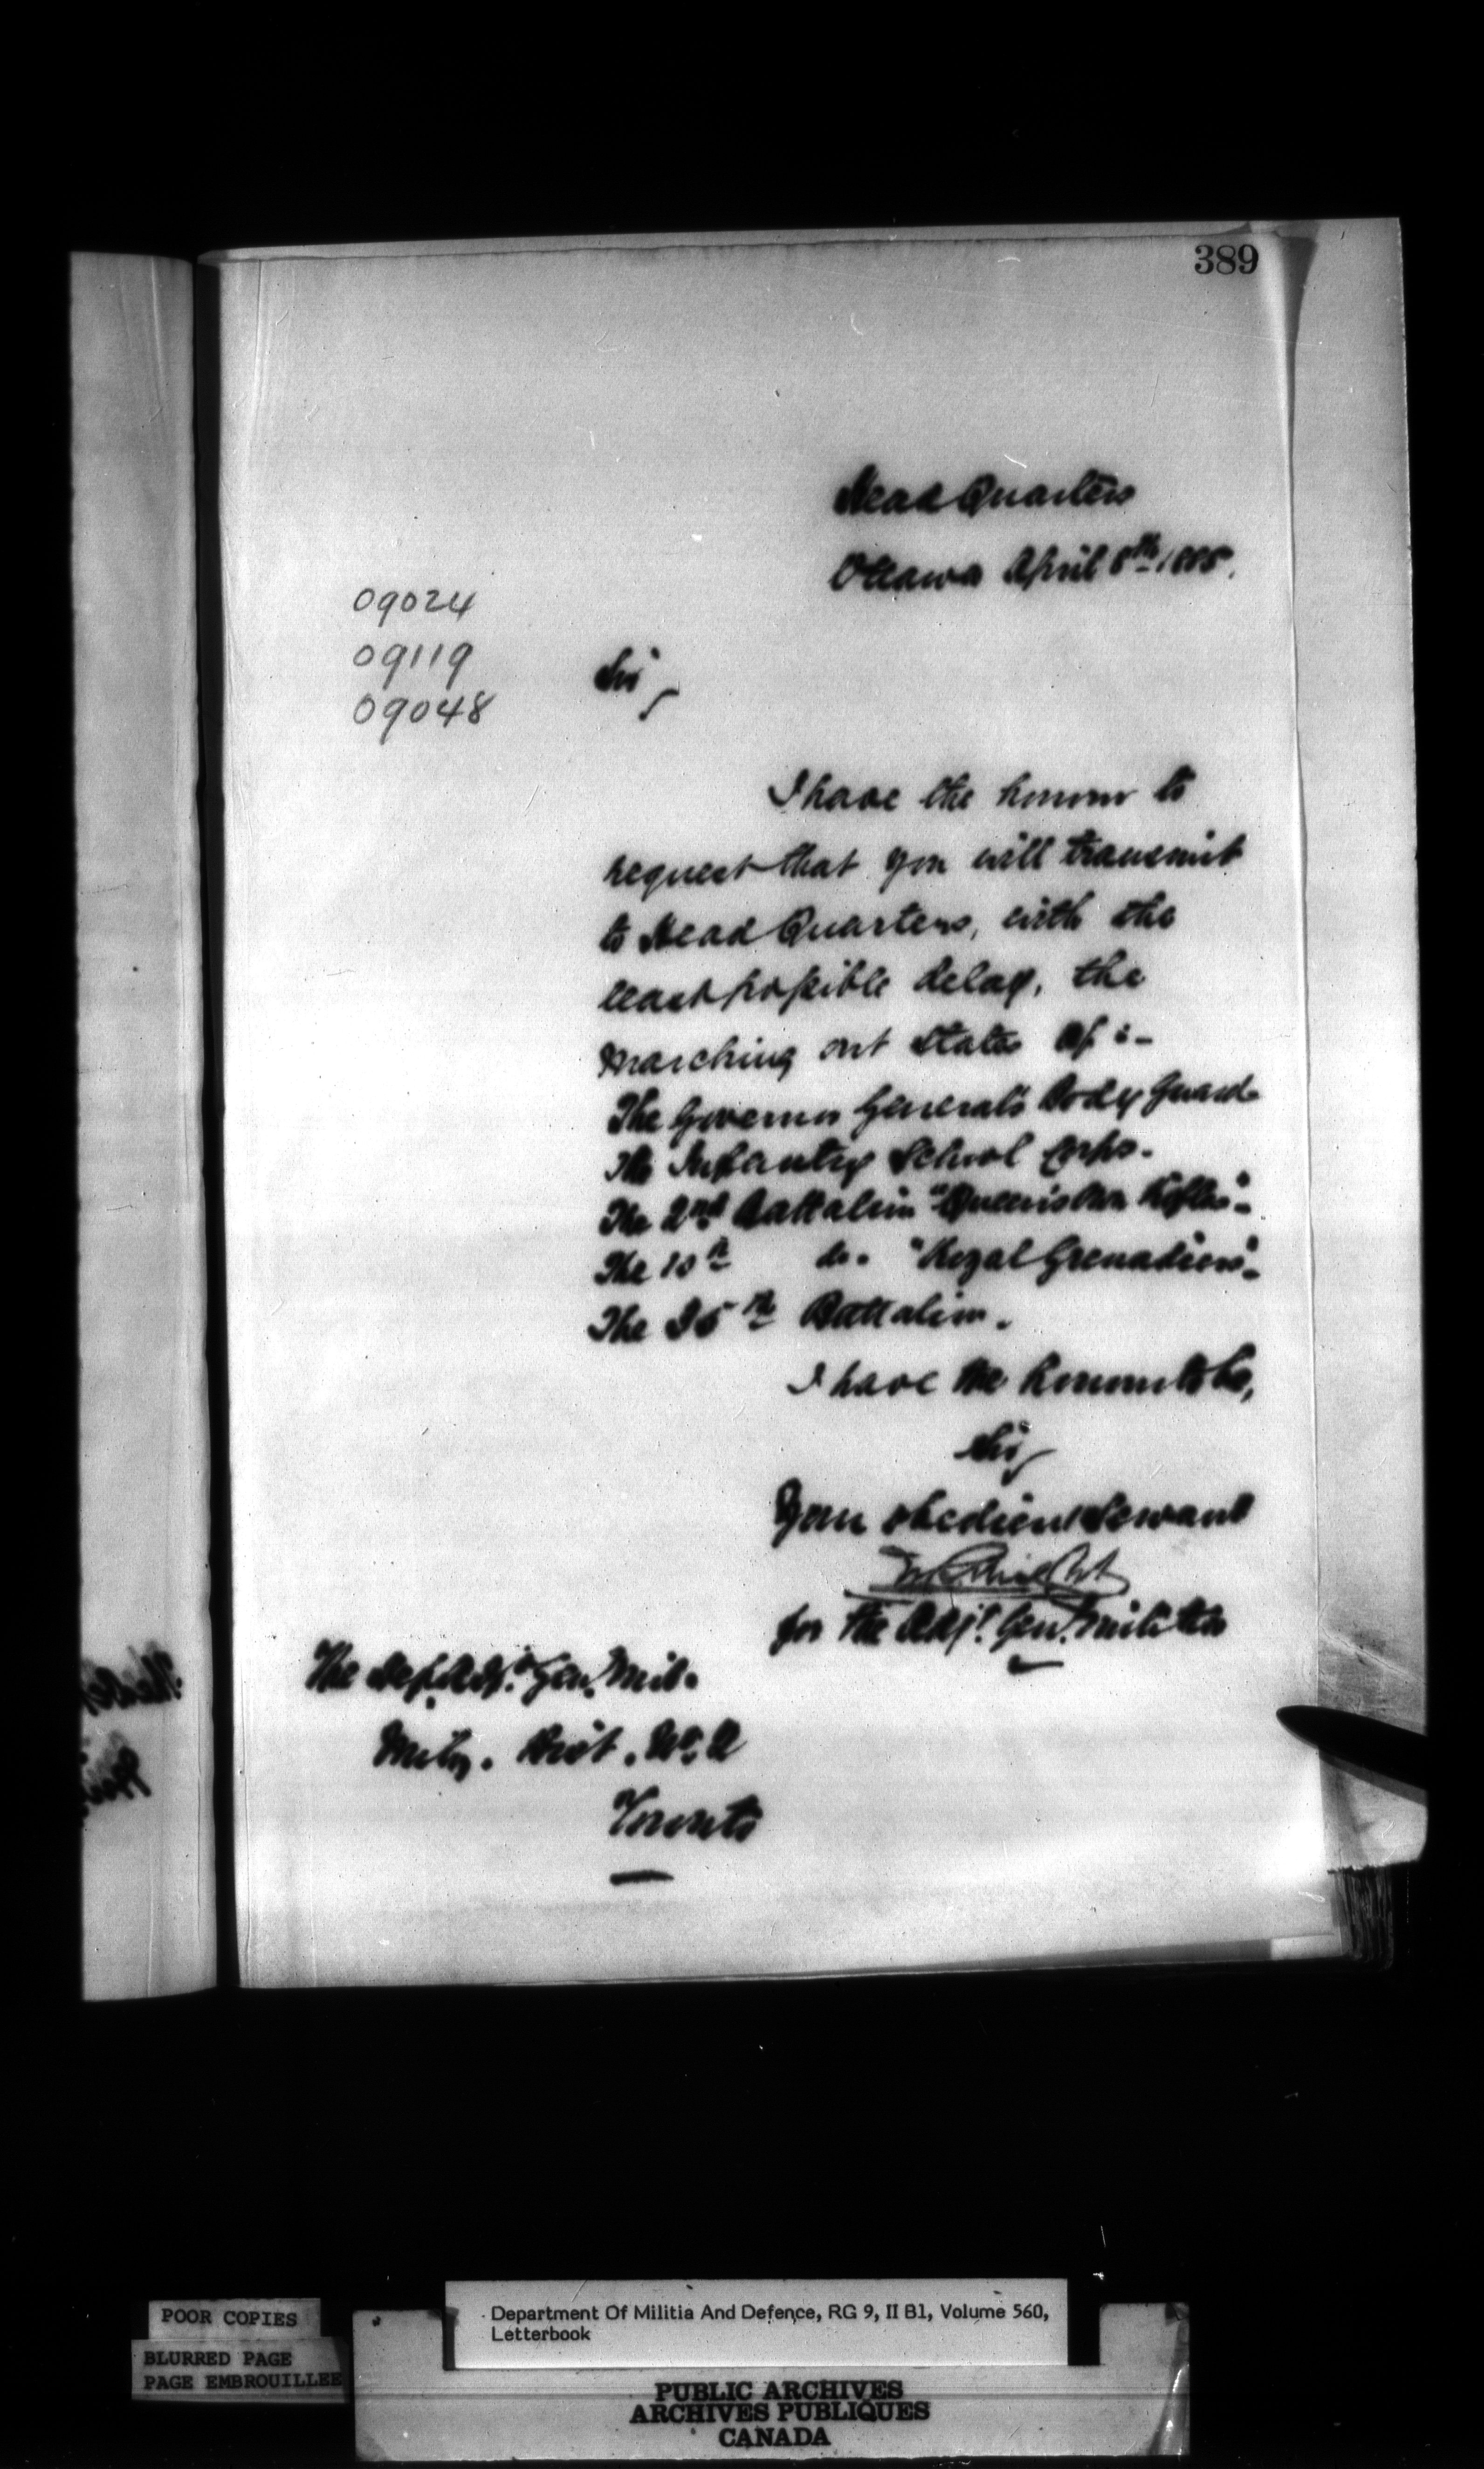 389
Head Quarters
Ottawa April 8th 1885.
09024
09119
09048
Sir,
I have the honour to
request that you will transmit
to Head Quarters, with the
least possible delay, the
marching out states of :-
The Governor General's Body Guard
The Infantry School Corps.
The 2nd Battalion "Queen's Own Rifles".
The 10th do. "Royal Grenadiers".
The 35th Battalion.
I have the honour to be,
Sir,
Your obedient Servant
for the Adjt. Gen. Militia
The Dep. Adjt. Gen. Mil.
Mily. Dist. No. 2
Toronto
POOR COPIES
BLURRED PAGE
PAGE EMBROUILLEE
Department Of Militia And Defence, RG 9, II B1, Volume 560,
Letterbook
PUBLIC ARCHIVES
ARCHIVES PUBLIQUES
CANADA